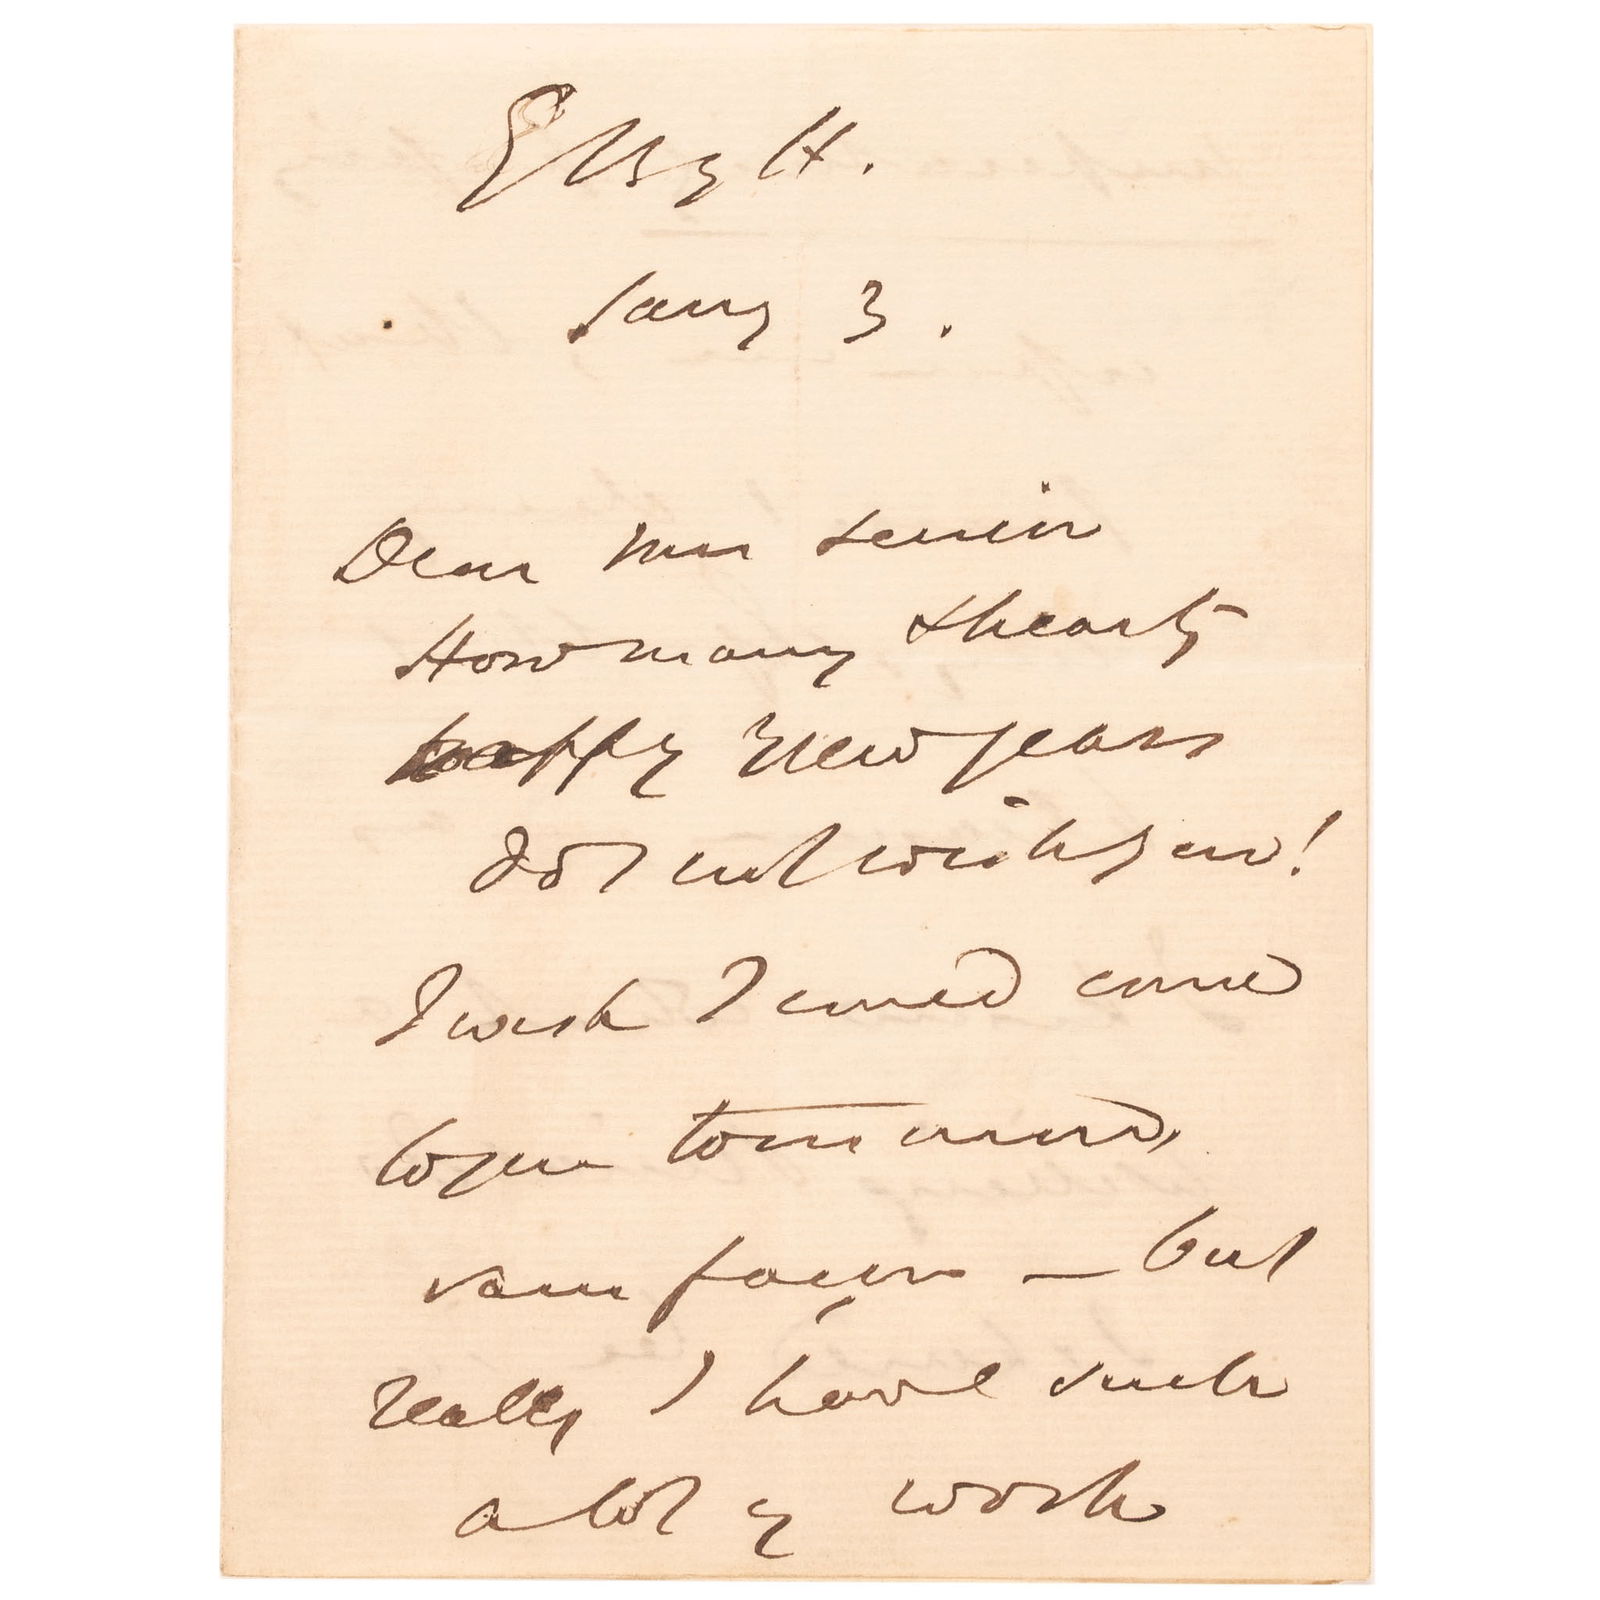 Jany 3.
Dear Mrs Senior
How many & hearty
happy New years
do I not wish you!
I wish I could come
to you tomorrow,
sans façon — but
really I have such
a lot of work